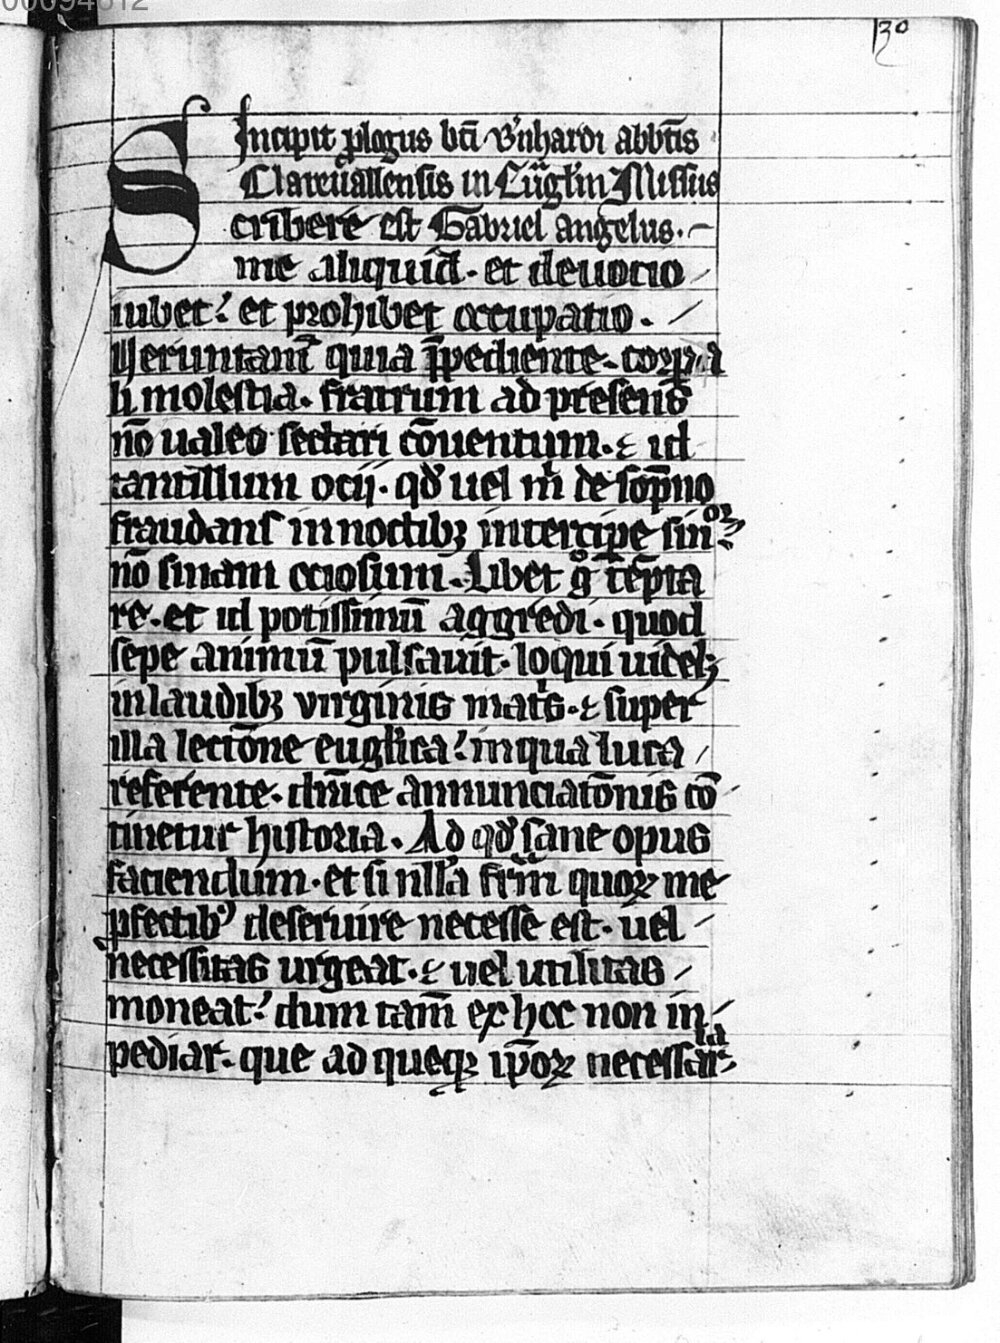 00094612
130
Incipit ꝓlogus bt̄i B'nhardi abbt̄is
Clareuallensis in Eu̅gliu̅ Missus
Scribere est Gabriel angelus.
me aliquid. et deuocio
iubet: et prohibet occupatio.
Ueruntam̅ quia īpediente. corpora
li molestia. fratrum ad presens
nō ualeo sectari cōuentum. ⁊ id
tantillum ocij. qd' uel m̄ de sōpno
fraudans in noctibꝫ intercipe sinor.
nō sinam ociosum. Libet gº tēpta
re. et id potissimū aggredi. quod
sepe animū pulsauit. loqui uidelꝫ
in laudibꝫ virginis mat's. ⁊ super
illa lectōne eugl'ica: in qua luca
referente. dn̄ice annunciatōnis cō
tinetur historia. Ad qd' sane opus
faciendum. et si nll'a fr̄m̄ quoꝝ me
ꝓfectibꝰ deseruire necesse est. uel
necessitas urgeat. ⁊ uel utilitas
moneat: dum tam̄ ex hoc non in
pediar. que ad queqꝫ ip̄oꝝ necessaria